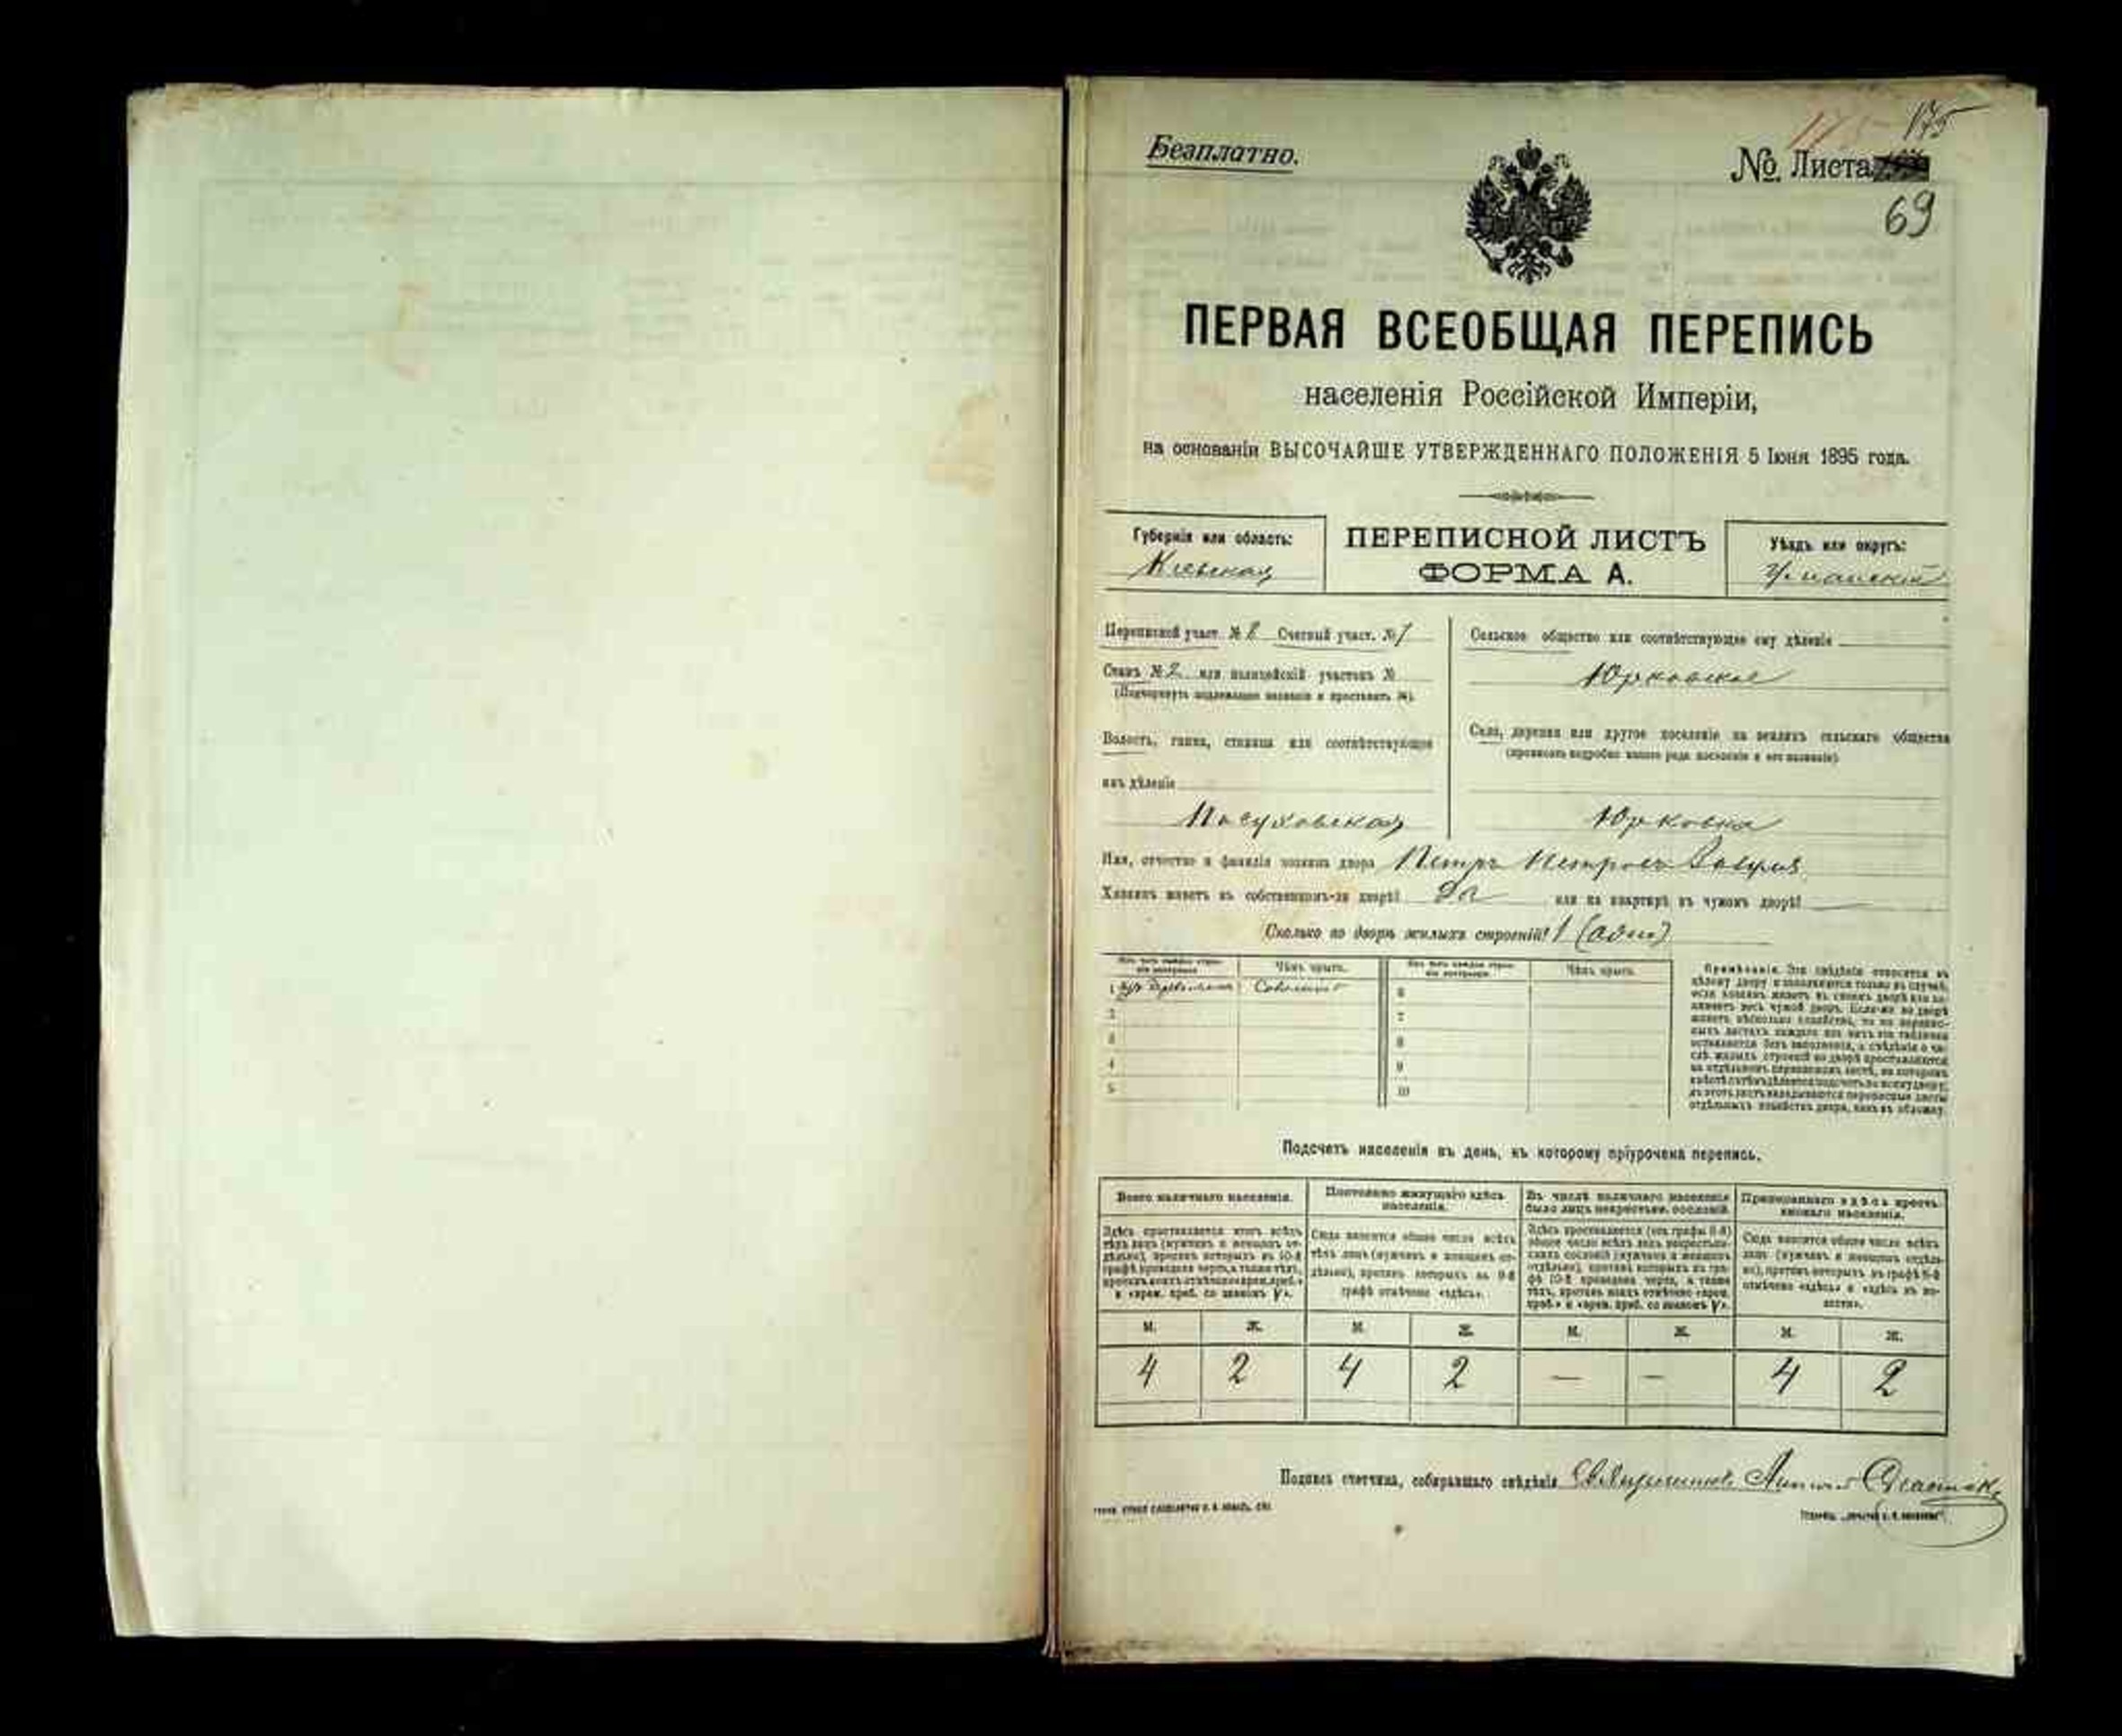 Безплатно.
175 175
№ Листа
69
ПЕРВАЯ ВСЕОБЩАЯ ПЕРЕПИСЬ
населенія Россійской Имперіи,
на основаніи ВЫСОЧАЙШЕ УТВЕРЖДЕННАГО ПОЛОЖЕНІЯ 5 Іюня 1895 года.
Губернія или область:
Кіевская
ПЕРЕПИСНОЙ ЛИСТЪ
ФОРМА А.
Уѣздъ или округъ:
Уманскій
Переписной участ. № 8 Счетный участ. № 7
Станъ № 2 или полицейскій участокъ №
(Подчеркнуть надлежащее названіе и проставить №).
Волость, гмина, станица или соотвѣтствующее
имъ дѣленіе
Посуховская
Сельское общество или соотвѣтствующее ему дѣленіе
Юрковское
Село, деревня или другое поселеніе на земляхъ сельскаго общества
(прописать подробно какого рода поселеніе и его названіе)
Юрковка
Имя, отчество и фамилія хозяина двора Петръ Петровъ
Хозяинъ живетъ въ собственномъ-ли дворѣ? Да или на квартирѣ въ чужомъ дворѣ?
Сколько во дворѣ жилыхъ строеній? 1 (один)
Изъ чего каждое строеніе построено Чѣмъ крыто. Изъ чего каждое строеніе построено Чѣмъ крыто.
1 Соломою 6
2 7
3 8
4 9
5 10
Примѣчаніе. Эти свѣдѣнія относятся къ
цѣлому двору и заполняются только въ случаѣ,
если хозяинъ живетъ въ своемъ дворѣ или за-
нимаетъ весь чужой дворъ. Если-же во дворѣ
живетъ нѣсколько хозяйствъ, то на перепис-
ныхъ листахъ каждаго изъ нихъ эта табличка
оставляется безъ заполненія, а свѣдѣнія о чи-
слѣ жилыхъ строеній во дворѣ проставляются
на отдѣльномъ переписномъ листѣ, на которомъ
вмѣстѣ съ тѣмъ дѣлается подсчетъ по всему двору;
въ этотъ листъ вкладываются переписные листы
отдѣльныхъ хозяйствъ двора, какъ въ обложку.
Подсчетъ населенія въ день, къ которому пріурочена перепись.
Всего наличнаго населенія.
Здѣсь проставляется итогъ всѣхъ
тѣхъ лицъ (мужчинъ и женщинъ от-
дѣльно), противъ которыхъ въ 10-й
графѣ проведена черта, а также тѣхъ,
противъ коихъ отмѣчено «врем. преб.»
и «врем. преб. со знакомъ V».
Постоянно живущаго здѣсь
населенія.
Сюда вносится общее число всѣхъ
тѣхъ лицъ (мужчинъ и женщинъ от-
дѣльно), противъ которыхъ въ 9-й
графѣ отмѣчено «здѣсь».
Въ числѣ наличнаго населенія
было лицъ некрестьян. сословій.
Здѣсь проставляется (изъ графы 8-й)
общее число всѣхъ лицъ некрестьян-
скихъ сословій (мужчинъ и женщинъ
отдѣльно), противъ которыхъ въ гра-
фѣ 10-й проведена черта, а также
тѣхъ, противъ коихъ отмѣчено «врем.
преб.» и «врем. преб. со знакомъ V».
Приписаннаго здѣсь кресть-
янскаго населенія.
Сюда вносится общее число всѣхъ
лицъ (мужчинъ и женщинъ отдѣль-
но), противъ которыхъ въ графѣ 8-й
отмѣчено «здѣсь» и «здѣсь въ во-
лости».
М. Ж. М. Ж. М. Ж. М. Ж.
4 2 4 2 — — 4 2
Подпись счетчика, собиравшаго свѣдѣнія